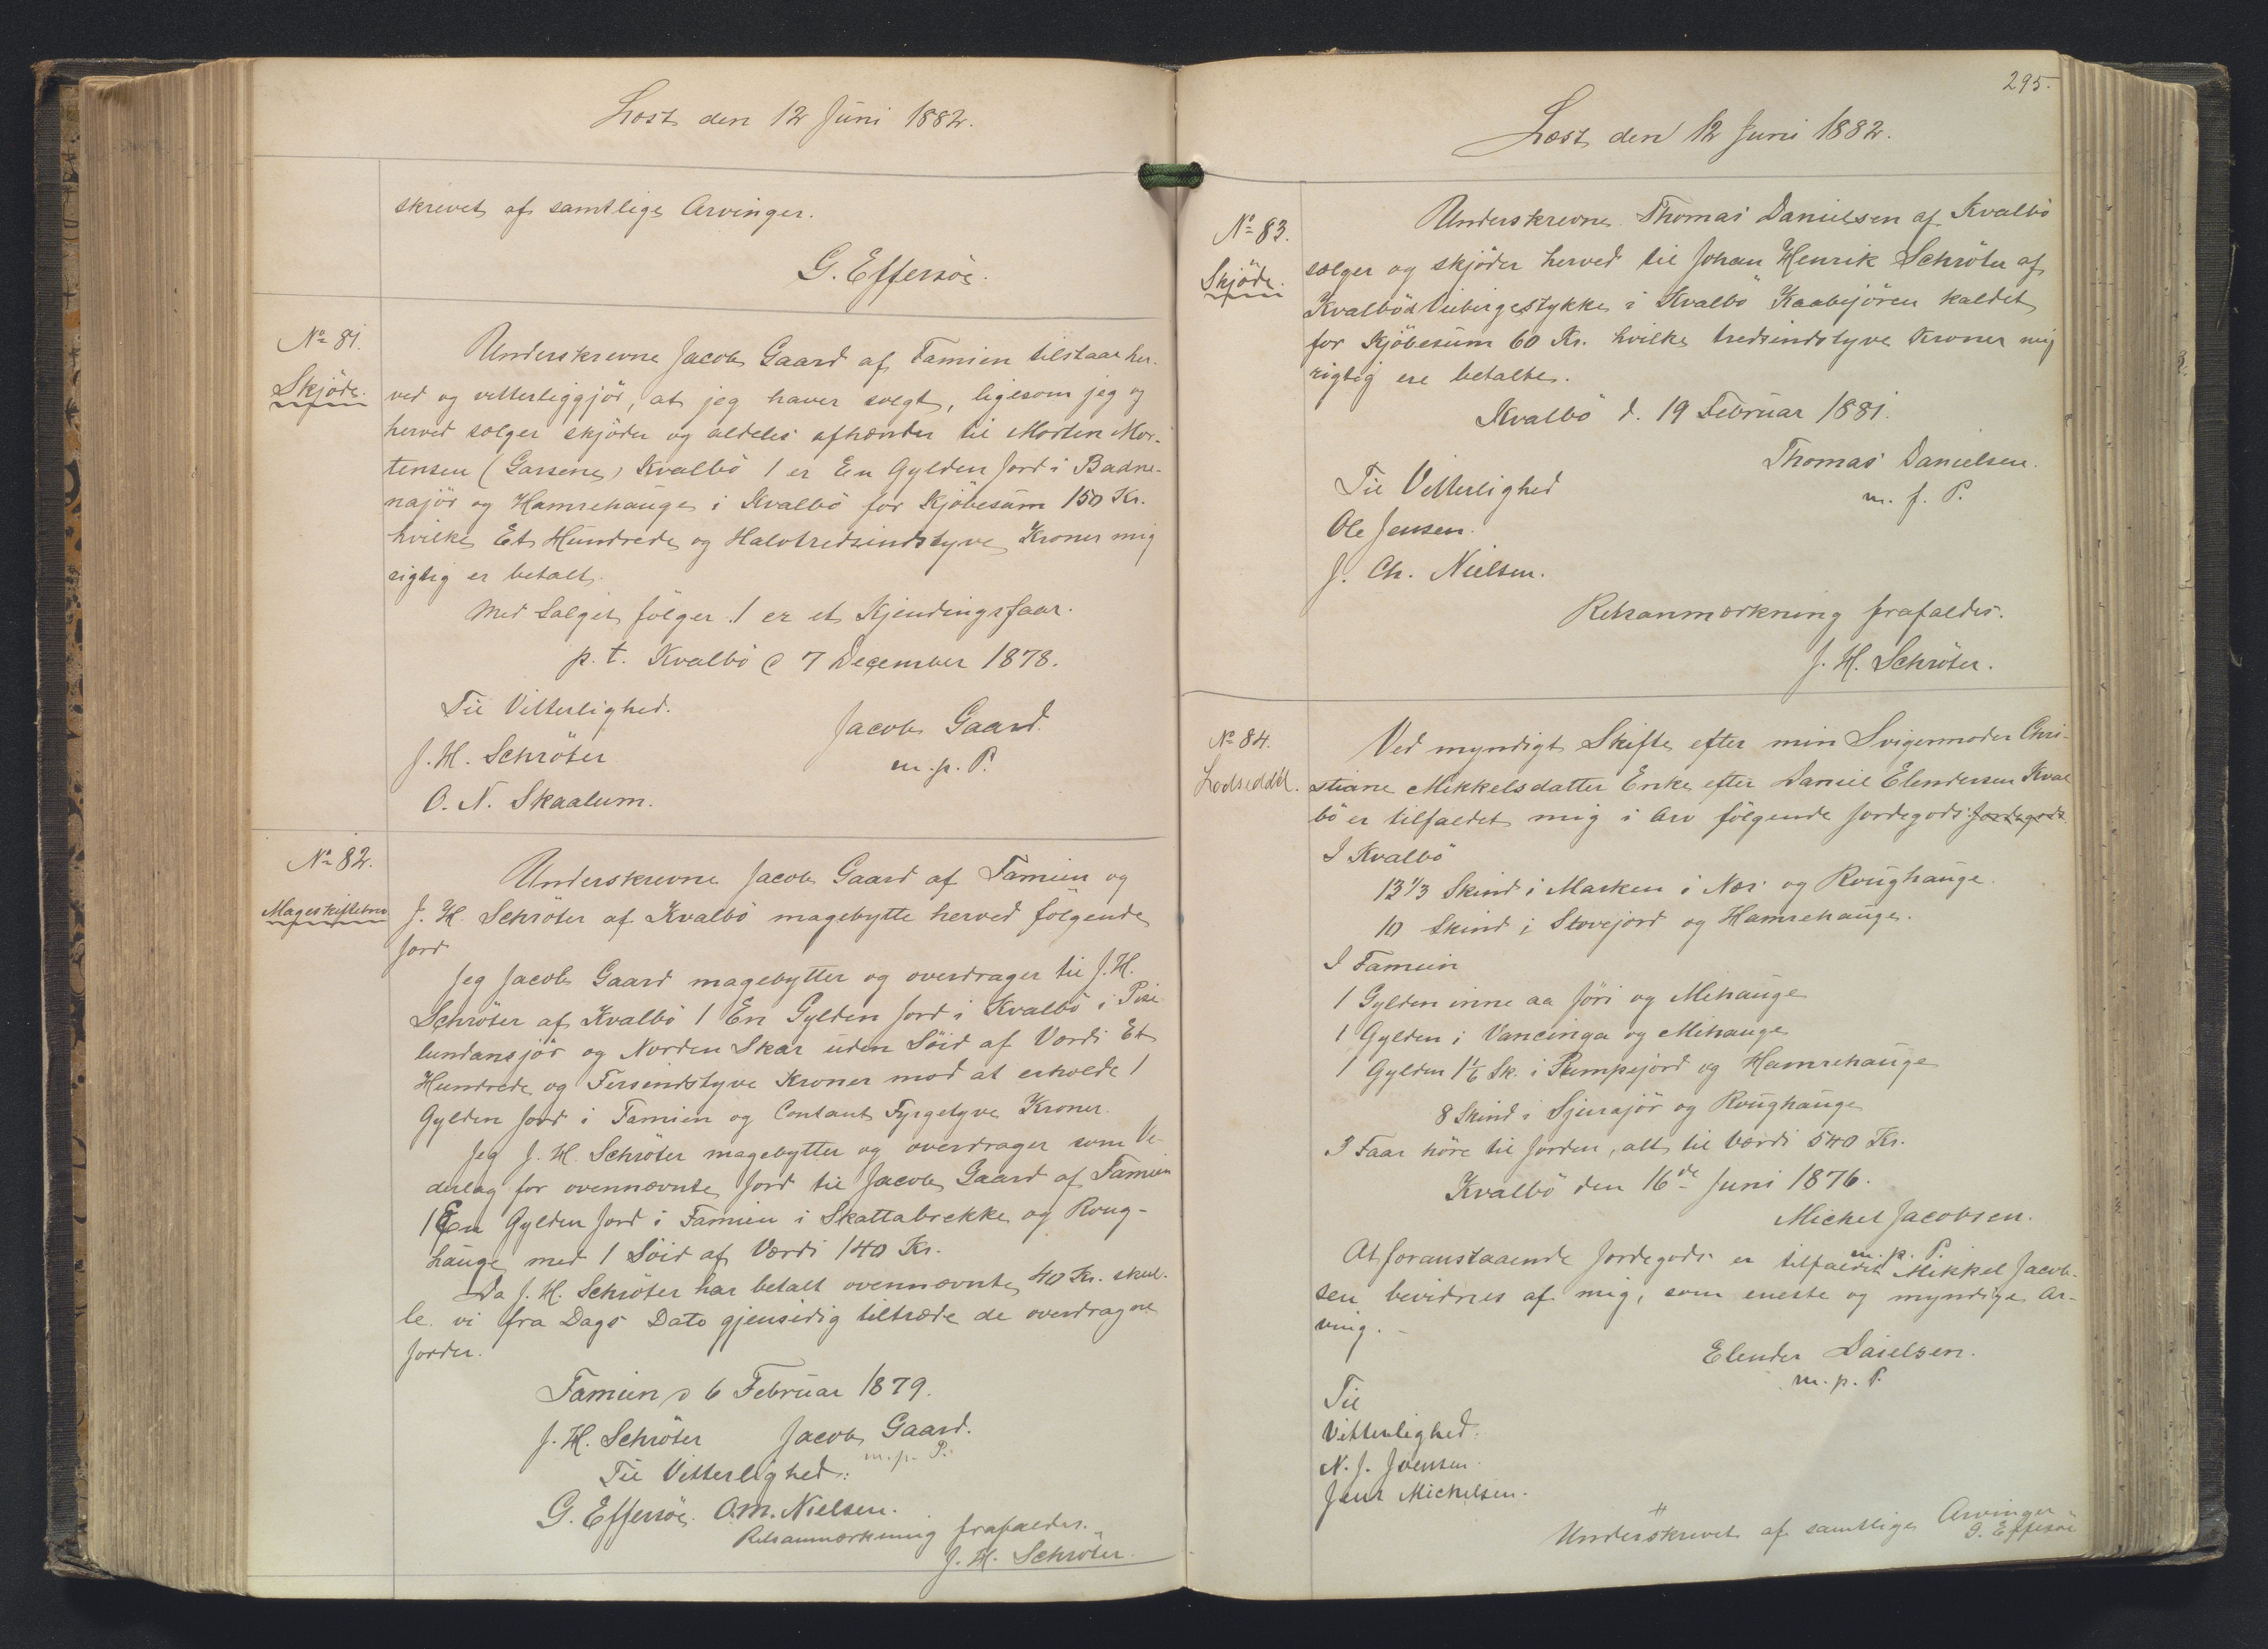 Læst den 12 Juni 1882.
skrevet af samtlige Arvinger.
G. Effersöe.
No 81.
Skjöde.
Underskrevne Jacob Gaard af Famien tilstaar her-
ved og vitterliggjör, at jeg haver solgt, ligesom jeg og
herved sælger skjöder og aldeles afhænder til Morten Mor-
tensen (Garsene) Kvalbö 1 er En Gylden Jord i Badne-
najör og Hamrehauge i Kvalbö for Kjöbesum 150 Kr.
hvilke Et Hundrede og Halvtredsindstyve Kroner mig
rigtig er betalt.
Med Salget fölger 1 er et Kjendingsfaar.
p. t. Kvalbö d 7 December 1878.
Til Vitterlighed.
Jacob Gaard.
m. p. P.
J. H. Schröter
O. N. Skaalum.
No 82.
Mageskiftebrev
Underskrevne Jacob Gaard af Famien og
J. H. Schröter af Kvalbö magebytte herved fölgende
Jord
Jeg Jacob Gaard magebytter og overdrager til J. H.
Schröter af Kvalbö 1 En Gylden Jord i Kvalbö i
lundansjör og Norden Skar uden Söid af Værdi Et
Hundrede og Firsindstyve Kroner mod at erholde 1
Gylden Jord i Famien og Contant Fyrgetyve Kroner.
Jeg J. H. Schröter magebytter og overdrager som Ve-
derlag for ovennævnte Jord til Jacob Gaard af Famien
1 En Gylden Jord i Famien i Skattabrekke og Roug-
hauge med 1 Söid af Værdi 140 Kr.
Da J. H. Schröter har betalt ovennævnte 40 Kr. skul-
le vi fra Dags Dato gjensidig tiltræde de overdragne
Jorder.
Famien d 6 Februar 1879.
J. H. Schröter Jacob Gaard.
m. p. P.
Til Vitterlighed:
G. Effersöe. O. M. Nielsen.
Retsanmærkning frafaldes.
J. H. Schröter.
295.
Læst den 12 Juni 1882.
No 83.
Skjöde.
Underskrevne Thomas Danielsen af Kvalbö
sælger og skjöder herved til Johan Henrik Schröter af
Kvalbö et i Kvalbö Kaabejören kaldet
for Kjöbesum 60 Kr. hvilke tredsindstyve Kroner mig
rigtig ere betalte.
Kvalbö d. 19 Februar 1881.
Thomas Danielsen.
m. f. P.
Til Vitterlighed
Ole Jensen.
J. Ch. Nielsen.
Retsanmærkning frafaldes.
J. H. Schröter.
No 84.
Lodseddel.
Ved myndigt Skifte efter min Svigermoder Chri-
stiane Mikkelsdatter Enke efter Daniel Elendersen Kval
bö er tilfaldet mig i Arv fölgende Jordegods: Jordegods
I Kvalbö
13 1/3 Skind i Marken i Nes og Roughauge.
10 Skind i Stovejord og Hamrehauge.
I Famien
1 Gylden inne aa Jöri og Mihauge
1 Gylden i Vancinga og Mihauge
1 Gylden 1 1/6 Sk. i Rumpejord og Hamrehauge
8 Skind i Sjurajör og Roughauge
3 Faar höre til Jorden, alt til Værdi 540 Kr.
Kvalbö den 16de Juni 1876.
Michel Jacobsen.
m. p. P.
At foranstaaende Jordegods er tilfaldet Mikkel Jacob-
sen bevidnes af mig, som eneste og myndige Ar-
ving. -
Elender Daielsen.
m. p. P.
Til
Vitterlighed:
N. J. Joensen.
Jens Michelsen.
Underskrevet af samtlige Arvinger
G. Effersöe